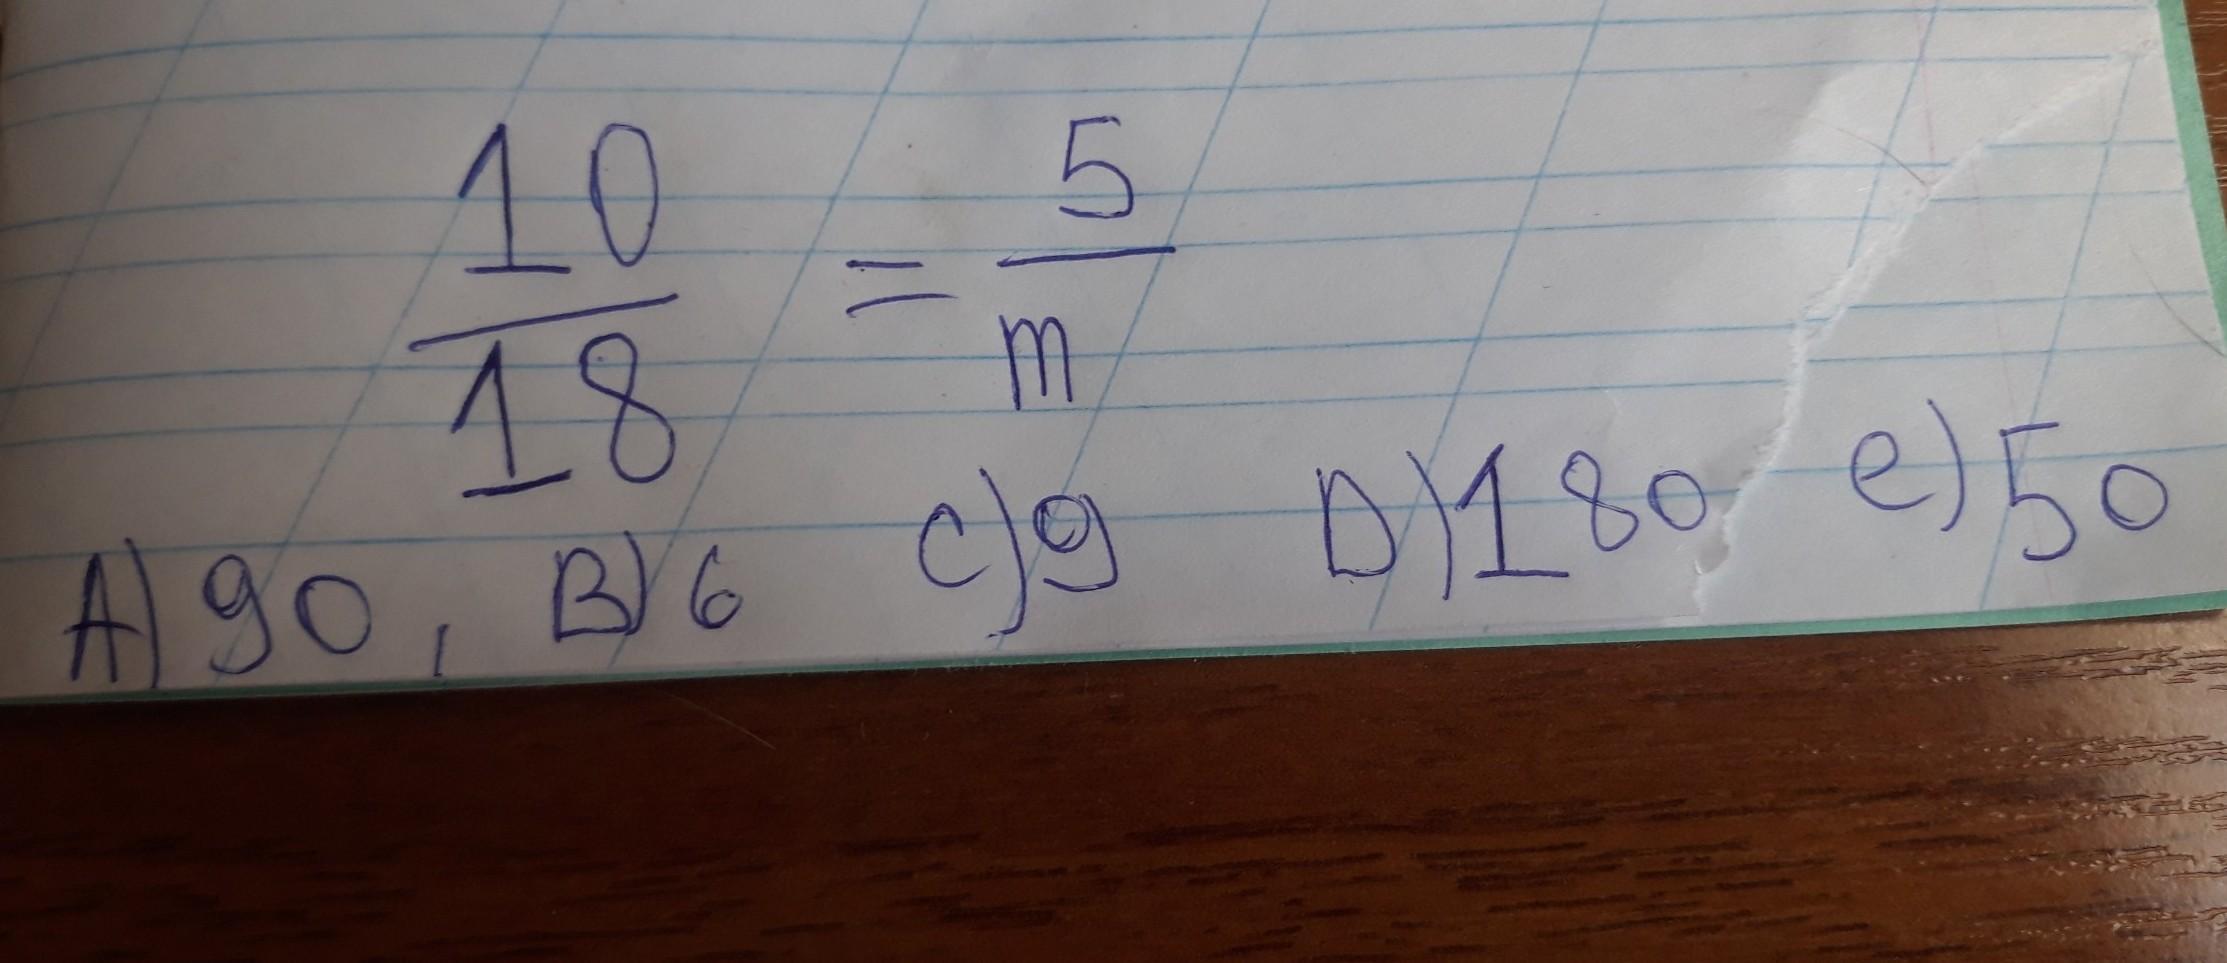 10/18 = 5/m
A) 90, B) 6 C) 9 D) 180 e) 50